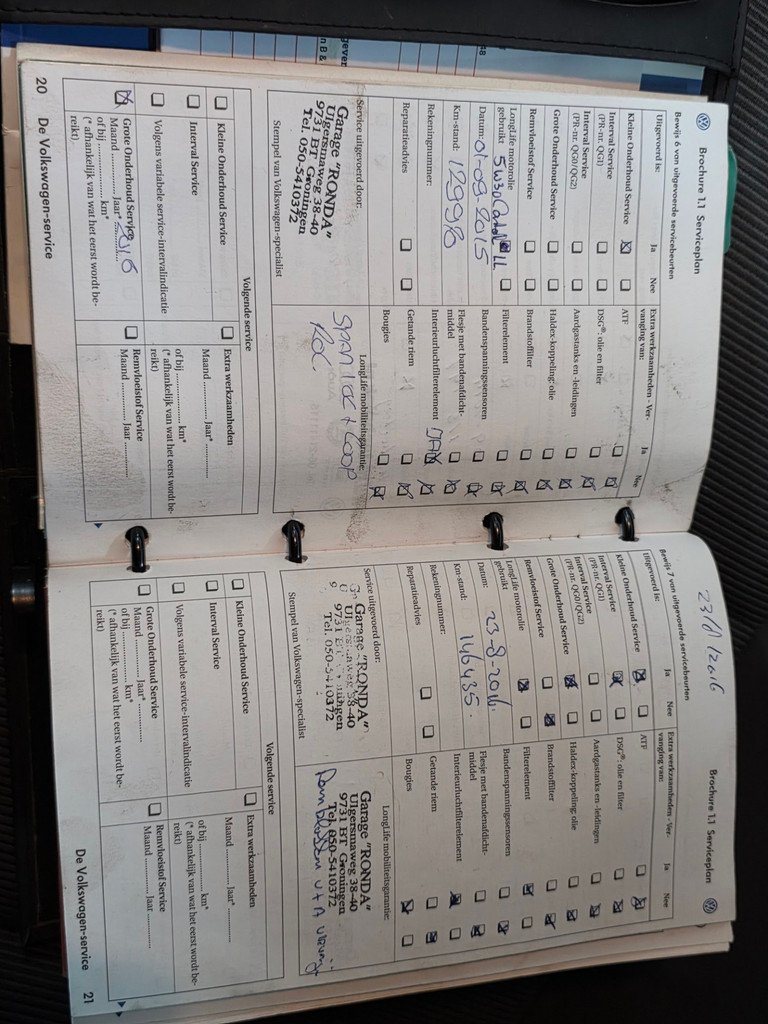 Brochure 1.1 Serviceplan
Bewijs 6 van uitgevoerde servicebeurten
Uitgevoerd is:
Ja
Nee
Kleine Onderhoud Service
Interval Service
(PR-nr. QG1)
Interval Service
(PR-nr. QG0/QG2)
Grote Onderhoud Service
Remvloeistof Service
LongLife motorolie
gebruikt
Datum: 01-09-2015
Km-stand:
Rekeningnummer:
Reparatieadvies
Extra werkzaamheden - Ver-
vanging van:
Ja
Nee
ATF
DSG®: olie en filter
Aardgastanks en -leidingen
Haldex-koppeling: olie
Brandstoffilter
Filterelement
Bandenspanningssensoren
Flesje met bandenafdicht-
middel
Interieurluchtfilterelement
Getande riem
Bougies
Service uitgevoerd door:
Garage "RONDA"
Ulgersmaweg 38-40
9731 BT Groningen
Tel. 050-5410372
Stempel van Volkswagen-specialist
LongLife mobiliteitsgarantie:
Volgende service
Kleine Onderhoud Service
Interval Service
Volgens variabele service-intervalindicatie
Grote Onderhoud Service
Maand ............ Jaar* 2016
of bij .................. km*
(* afhankelijk van wat het eerst wordt be-
reikt)
Extra werkzaamheden
Maand ............ Jaar* ............
of bij .................. km*
(* afhankelijk van wat het eerst wordt be-
reikt)
Remvloeistof Service
Maand ............ Jaar ............
20 De Volkswagen-service
23/8/2016
Brochure 1.1 Serviceplan
Bewijs 7 van uitgevoerde servicebeurten
Uitgevoerd is:
Ja
Nee
Kleine Onderhoud Service
Interval Service
(PR-nr. QG1)
Interval Service
(PR-nr. QG0/QG2)
Grote Onderhoud Service
Remvloeistof Service
LongLife motorolie
gebruikt
Datum: 23-8-2016.
Km-stand: 146435.
Rekeningnummer:
Reparatieadvies
Extra werkzaamheden - Ver-
vanging van:
Ja
Nee
ATF
DSG®: olie en filter
Aardgastanks en -leidingen
Haldex-koppeling: olie
Brandstoffilter
Filterelement
Bandenspanningssensoren
Flesje met bandenafdicht-
middel
Interieurluchtfilterelement
Getande riem
Bougies
Service uitgevoerd door:
Garage "RONDA"
Ulgersmaweg 38-40
9731 BT Groningen
Tel. 050-5410372
Stempel van Volkswagen-specialist
LongLife mobiliteitsgarantie:
Garage "RONDA"
Ulgersmaweg 38-40
9731 BT Groningen
Tel. 050-5410372
Volgende service
Kleine Onderhoud Service
Interval Service
Volgens variabele service-intervalindicatie
Grote Onderhoud Service
Maand ............ Jaar* ............
of bij .................. km*
(* afhankelijk van wat het eerst wordt be-
reikt)
Extra werkzaamheden
Maand ............ Jaar* ............
of bij .................. km*
(* afhankelijk van wat het eerst wordt be-
reikt)
Remvloeistof Service
Maand ............ Jaar ............
De Volkswagen-service 21